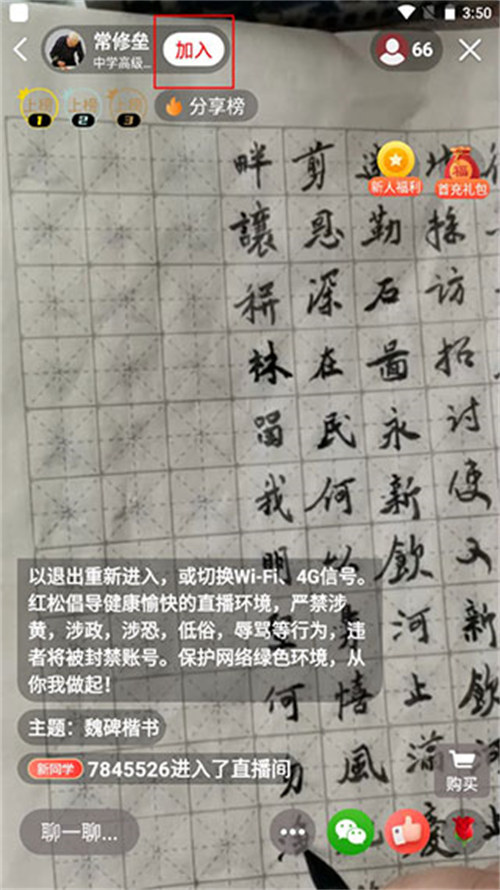 3:50
常修垒
中学高级...
加入
66
上榜 1
上榜 2
上榜 3
分享榜
新人福利
福
首充礼包
畔 剪
讓 恩 勤 採
稱 深 石 访
林 在 圖 招
留 民 永 讨
我 何 新 使
明 以 飲 又
以退出重新进入，或切换Wi-Fi、4G信号。
红松倡导健康愉快的直播环境，严禁涉
黄，涉政，涉恐，低俗，辱骂等行为，违
者将被封禁账号。保护网络绿色环境，从
你我做起！
河 新
何 憘 上 飲
主题：魏碑楷书
新同学 7845526进入了直播间
風 瀟 河
购买
聊一聊...